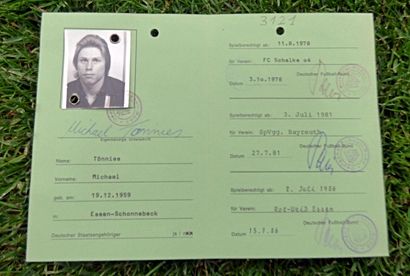 3121
Michael Tönnies
Eigenhändige Unterschrift
Name: Tönnies
Vorname: Michael
geb. am: 19.12.1959
in: Essen-Schonnebeck
Deutscher Staatsangehöriger ja /
Spielberechtigt ab: 11.8.1978
für Verein: FC Schalke 04
Deutscher Fußball-Bund
Datum 3.10.1978
Spielberechtigt ab: 3. Juli 1981
für Verein: SpVgg. Bayreuth
Deutscher Fußball-Bund
Datum 27.7.81
Spielberechtigt ab: Juli 1986
für Verein: Rot-Weiß Essen
Deutscher Fußball-Bund
Datum 15.7.86